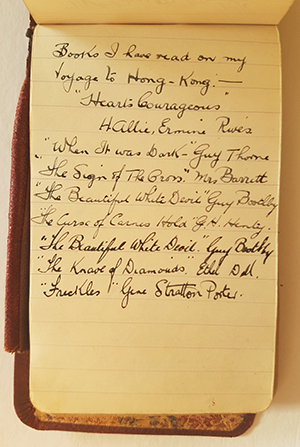 Books I have read on my
Voyage to Hong-Kong:—
"Hearts Courageous"
Hallie, Ermine Rives
"When It was Dark" Guy Thorne
"The Sign of The Cross." Mrs Barrett
"The Beautiful White Devil" Guy Boothby
The Curse of Carnes Hold G.H. Henty.
"The Beautiful White Devil" Guy Boothby
"The Knave of Diamonds" Ethel Dell.
"Freckles" Gene Stratton Porter.